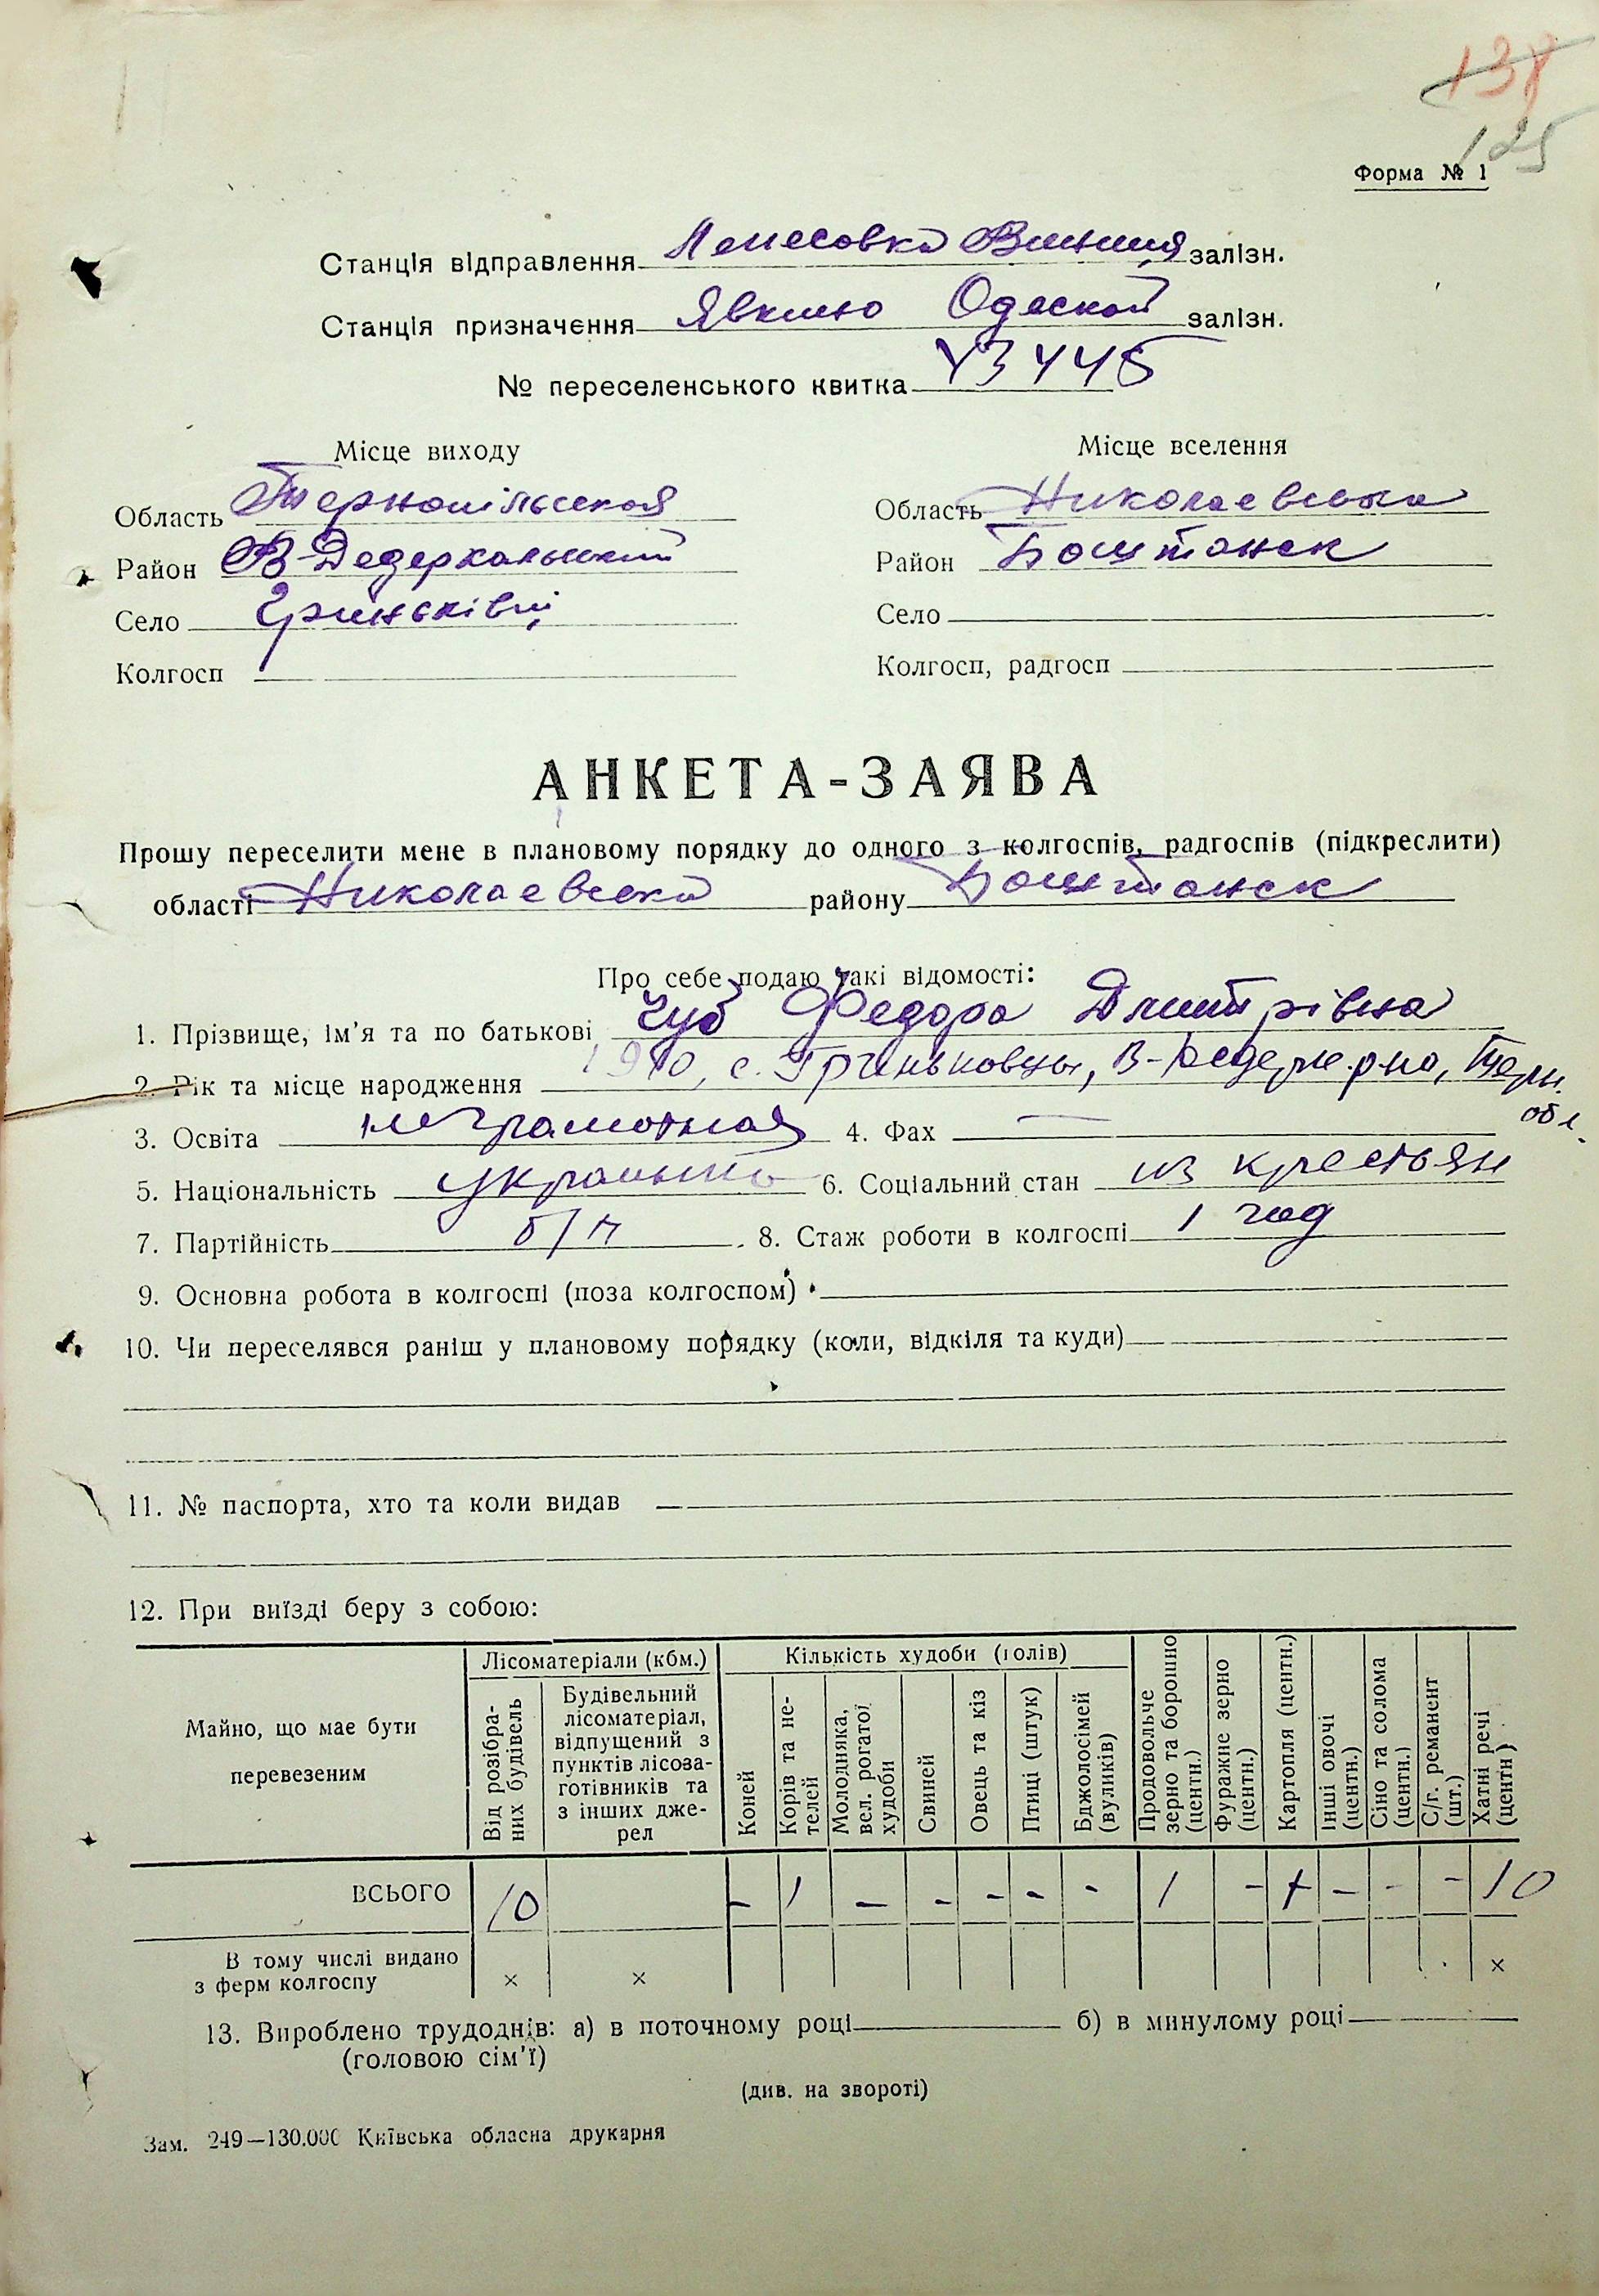 138
125
Форма № 1
Станція відправлення Лепесовка Винниця залізн.
Станція призначення Явкино Одеской залізн.
№ переселенського квитка 43445
Місце виходу
Область Тернопільская
Район В-Дедеркальский
Село Гриньківці
Колгосп
Місце вселення
Область Николаевська
Район Баштанск
Село
Колгосп, радгосп
АНКЕТА-ЗАЯВА
Прошу переселити мене в плановому порядку до одного з колгоспів, радгоспів (підкреслити)
області Николаевска району Баштанск
Про себе подаю такі відомості:
1. Прізвище, ім'я та по батькові Чуб Федора Дмитрівна
2. Рік та місце народження 1910, с. Гриньковцы, В-Дедерк. р-на, Терн. обл.
3. Освіта неграмотная 4. Фах —
5. Національність украинка 6. Соціальний стан из крестьян
7. Партійність б/п 8. Стаж роботи в колгоспі 1 год
9. Основна робота в колгоспі (поза колгоспом)
10. Чи переселявся раніш у плановому порядку (коли, відкіля та куди)
11. № паспорта, хто та коли видав
12. При виїзді беру з собою:
Майно, що має бути перевезеним
Лісоматеріали (кбм.)
Від розібраних будівель
Будівельний лісоматеріал, відпущений з пунктів лісозаготівників та з інших джерел
Кількість худоби (голів)
Коней
Корів та нетелей
Молодняка, вел. рогатої худоби
Свиней
Овець та кіз
Птиці (штук)
Бджолосімей (вуликів)
Продовольче зерно та борошно (центн.)
Фуражне зерно (центн.)
Картопля (центн.)
Інші овочі (центн.)
Сіно та солома (центн.)
С/г. реманент (шт.)
Хатні речі (центн)
ВСЬОГО 10 - 1 - - - - - 1 - + - - - 10
В тому числі видано з ферм колгоспу × × ×
13. Вироблено трудоднів: а) в поточному році б) в минулому році
(головою сім'ї)
(див. на звороті)
Зам. 249—130.000 Київська обласна друкарня